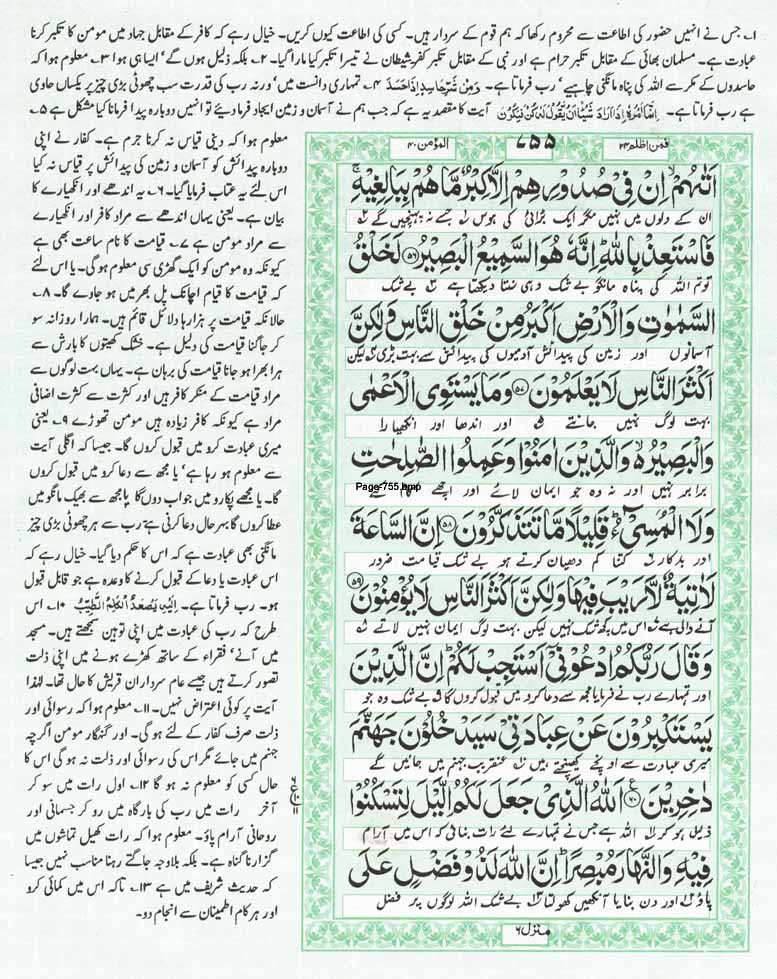 ۱۔ جس نے انہیں حضور کی اطاعت سے محروم رکھا کہ ہم قوم کے سردار ہیں۔ کسی کی اطاعت کیوں کریں۔ خیال رہے کہ کافر کے مقابل جہاد میں مومن کا تکبر کرنا
عبادت ہے۔ مسلمان بھائی کے مقابل تکبر حرام ہے اور نبی کے مقابل تکبر کفر شیطان نے تیسرا تکبر کیا مارا گیا۔ ۲۔ بلکہ ذلیل ہوں گے' ایسا ہی ہوا ۳۔ معلوم ہوا کہ
حاسدوں کے مکر سے اللہ کی پناہ مانگنی چاہیے' رب فرماتا ہے۔ وَمِنْ شَرِّ حَاسِدٍ اِذَا حَسَدَ ۴۔ تمہاری دانست میں' ورنہ رب کی قدرت سب چھوٹی بڑی چیز پر یکساں حاوی
ہے رب فرماتا ہے۔ اِنَّمَا اَمْرُهٗ اِذَا اَرَادَ شَيْئًا اَنْ يَّقُوْلَ لَهٗ كُنْ فَيَكُوْنُ آیت کا مقصد یہ ہے کہ جب ہم نے آسمان و زمین ایجاد فرما دیئے تو انہیں دوبارہ پیدا فرمانا کیا مشکل ہے ۵۔
معلوم ہوا کہ دینی قیاس نہ کرنا جرم ہے۔ کفار نے اپنی
دوبارہ پیدائش کو آسمان و زمین کی پیدائش پر قیاس نہ کیا
اس لئے یہ عتاب فرمایا گیا۔ ۶۔ یہ اندھے اور انکھیارے کا
بیان ہے۔ یعنی یہاں اندھے سے مراد کافر اور انکھیارے
سے مراد مومن ہے ۷۔ قیامت کا نام ساعت بھی ہے
کیونکہ وہ مومن کو ایک گھڑی سی معلوم ہو گی۔ یا اس لئے
کہ قیامت کا قیام اچانک پل بھر میں ہو جاوے گا۔ ۸۔
حالانکہ قیامت پر ہزارہا دلائل قائم ہیں۔ ہمارا روزانہ سو
کر جاگنا قیامت کی دلیل ہے۔ خشک کھیتوں کا بارش سے
ہرا بھرا ہو جانا قیامت کی برہان ہے۔ یہاں بہت لوگوں سے
مراد قیامت کے منکر کافر ہیں اور کثرت سے کثرت اضافی
مراد ہے کیونکہ کافر زیادہ ہیں مومن تھوڑے ۹۔ یعنی
میری عبادت کرو میں قبول کروں گا۔ جیسا کہ اگلی آیت
سے معلوم ہو رہا ہے' یا مجھ سے دعا کرو میں قبول کروں
گا۔ یا مجھے پکارو میں جواب دوں گا یا مجھ سے بھیک مانگو میں
عطا کروں گا بہرحال دعا کرنی ہے رب سے ہر چھوٹی بڑی چیز
مانگنی بھی عبادت ہے کہ اس کا حکم دیا گیا۔ خیال رہے کہ
اس عبادت یا دعا کے قبول کرنے کا وعدہ ہے جو قابل قبول
ہو۔ رب فرماتا ہے۔ اِلَيْهِ يَصْعَدُ الْكَلِمُ الطَّيِّبُ ۱۰۔ اس
طرح کہ رب کی عبادت میں اپنی توہین سمجھتے ہیں۔ مسجد
میں آنے' فقراء کے ساتھ کھڑے ہونے میں اپنی ذلت
تصور کرتے ہیں جیسے عام سرداران قریش کا حال تھا۔ لہٰذا
آیت پر کوئی اعتراض نہیں۔ ۱۱۔ معلوم ہوا کہ رسوائی اور
ذلت صرف کفار کے لئے ہو گی۔ اور گنہگار مومن اگرچہ
جہنم میں جائے مگر اس کی رسوائی اور ذلت نہ ہو گی اس کا
حال کسی کو معلوم نہ ہو گا ۱۲۔ اول رات میں سو کر
آخر رات میں رب کی بارگاہ میں رو کر جسمانی اور
روحانی آرام پاؤ۔ معلوم ہوا کہ رات کھیل تماشوں میں
گزارنا گناہ ہے۔ بلکہ بلاوجہ جاگتے رہنا مناسب نہیں جیسا
کہ حدیث شریف میں ہے ۱۳۔ تاکہ اس میں کمائی کرو
اور ہر کام اطمینان سے انجام دو۔
فمن اظلم ۲۴
۷۵۵
المؤمن ۴۰
اَتٰىهُمْ ۙ اِنْ فِيْ صُدُوْرِهِمْ اِلَّا كِبْرٌ مَّا هُمْ بِبَالِغِيْهِ ۚ
ان کے دلوں میں نہیں مگر ایک بڑائی کی ہوس ۱ جسے نہ پہنچیں گے ۲
فَاسْتَعِذْ بِاللّٰهِ ؕ اِنَّهٗ هُوَ السَّمِيْعُ الْبَصِيْرُ ﴿۵۶﴾ لَخَلْقُ
تو تم اللہ کی پناہ مانگو بے شک وہی سنتا دیکھتا ہے ۳ بے شک
السَّمٰوٰتِ وَالْاَرْضِ اَكْبَرُ مِنْ خَلْقِ النَّاسِ وَلٰكِنَّ
آسمانوں اور زمین کی پیدائش آدمیوں کی پیدائش سے بہت بڑی ۴ لیکن
اَكْثَرَ النَّاسِ لَا يَعْلَمُوْنَ ﴿۵۷﴾ وَمَا يَسْتَوِي الْاَعْمٰى
بہت لوگ نہیں جانتے ۵ اور اندھا اور انکھیارا
وَالْبَصِيْرُ ۙ۬ وَالَّذِيْنَ اٰمَنُوْا وَعَمِلُوا الصّٰلِحٰتِ
برابر نہیں اور نہ وہ جو ایمان لائے اور اچھے کام کئے
Page-755.bmp
وَلَا الْمُسِيْٓءُ ؕ قَلِيْلًا مَّا تَتَذَكَّرُوْنَ ﴿۵۸﴾ اِنَّ السَّاعَةَ
اور بدکار ۶ کتنا کم دھیان کرتے ہو بے شک قیامت ضرور
لَاٰتِيَةٌ لَّا رَيْبَ فِيْهَا وَلٰكِنَّ اَكْثَرَ النَّاسِ لَا يُؤْمِنُوْنَ ﴿۵۹﴾
آنے والی ہے ۷ اس میں کچھ شک نہیں لیکن بہت لوگ ایمان نہیں لاتے ۸
وَقَالَ رَبُّكُمُ ادْعُوْنِيْٓ اَسْتَجِبْ لَكُمْ ؕ اِنَّ الَّذِيْنَ
اور تمہارے رب نے فرمایا مجھ سے دعا کرو میں قبول کروں گا ۹ بے شک وہ جو
يَسْتَكْبِرُوْنَ عَنْ عِبَادَتِيْ سَيَدْخُلُوْنَ جَهَنَّمَ
میری عبادت سے اونچے کھنچتے ہیں ۱۰ عنقریب جہنم میں جائیں گے
دٰخِرِيْنَ ﴿۶۰﴾ اَللّٰهُ الَّذِيْ جَعَلَ لَكُمُ الَّيْلَ لِتَسْكُنُوْا
ذلیل ہو کر ۱۱ اللہ ہے جس نے تمہارے لئے رات بنائی کہ اس میں آرام
فِيْهِ وَالنَّهَارَ مُبْصِرًا ؕ اِنَّ اللّٰهَ لَذُوْ فَضْلٍ عَلَى
پاؤ ۱۲ اور دن بنایا آنکھیں کھولتا ۱۳ بے شک اللہ لوگوں پر فضل
منزل ۶